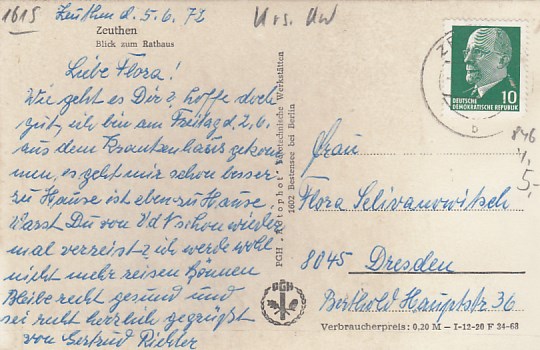 1615 Zeuthen d. 5.6.72
Urs.
Zeuthen
Blick zum Rathaus
Liebe Flora!
Wie geht es Dir?, hoffe doch
gut, ich bin am Freitag d. 2.6.
aus dem Krankenhaus gekom
men, es geht mir schon besser
zu Hause ist eben zu Hause.
Warst Du von VdN schon wieder
mal verreist? ich werde wohl
nicht mehr reisen können
Bleibe recht gesund und
sei recht herzlich gegrüßt
von Gertrud Richter
PGH „Autophot“ Fototechnische Werkstätten
1602 Bestensee bei Berlin
PGH
DEUTSCHE
DEMOKRATISCHE REPUBLIK
10
b
846
5,-
Frau
Flora Selivanowitsch
8045 Dresden
Berthold Hauptstr 36
Verbraucherpreis: 0,20 M - I-12-20 F 24-68